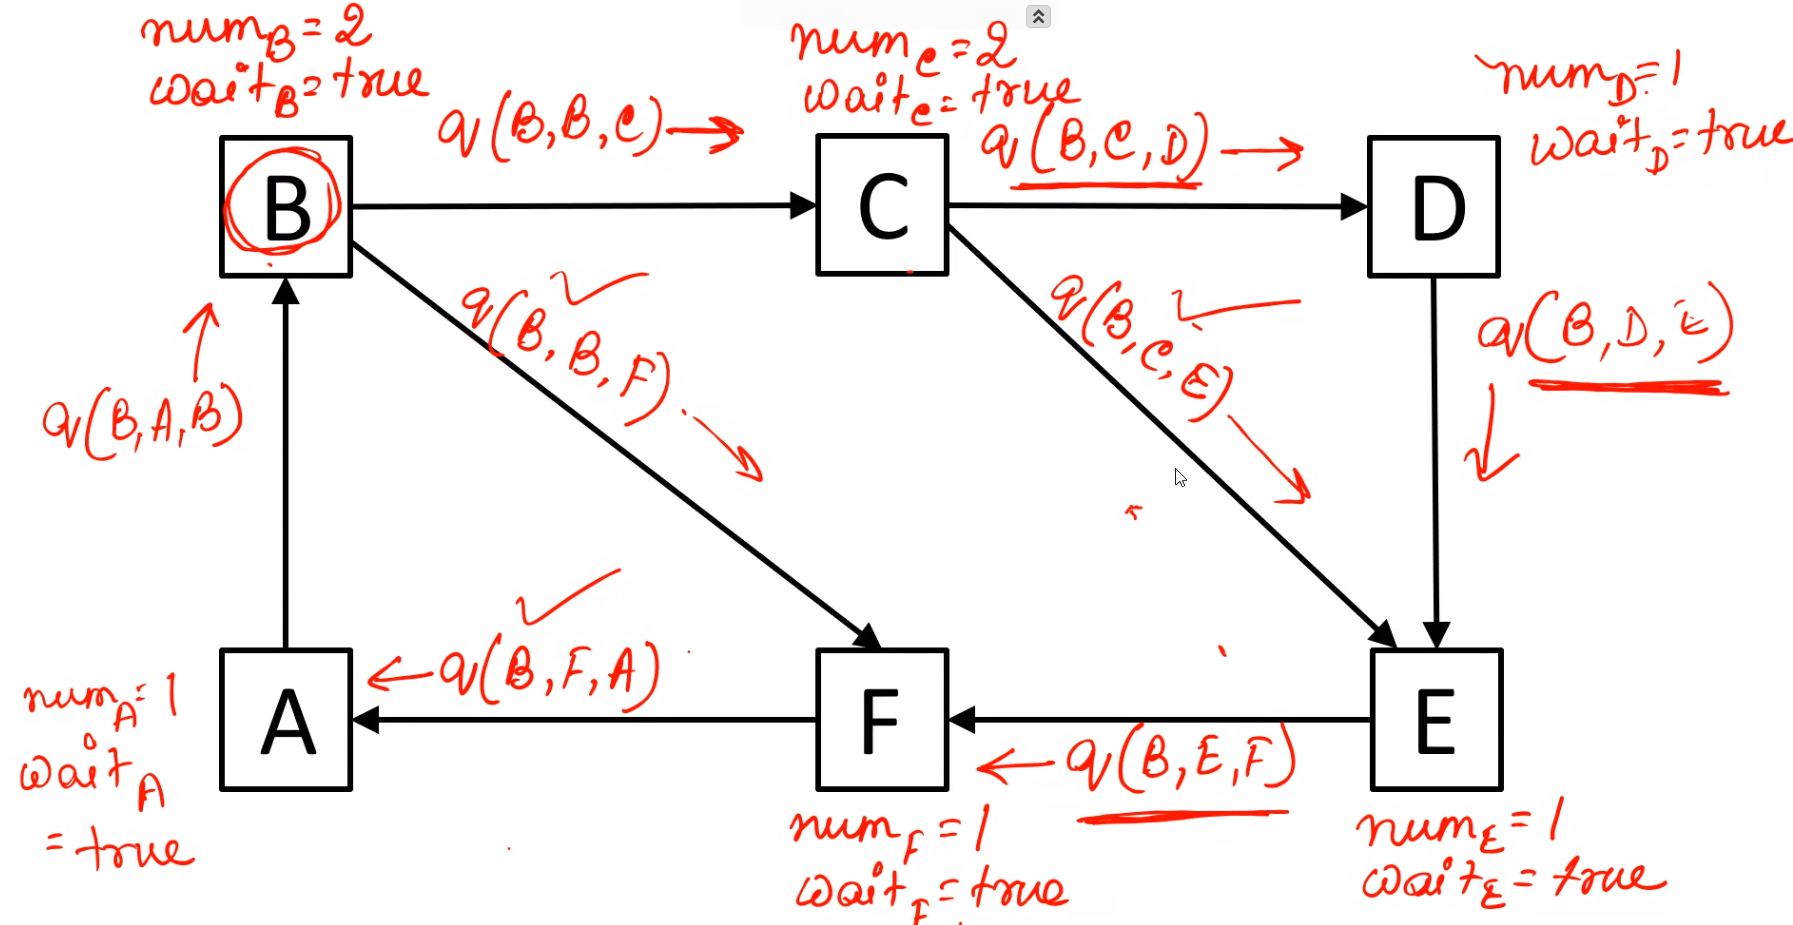 num_B = 2
wait_B = true
q(B,B,C)
num_C = 2
wait_C = true
q(B,C,D)
num_D = 1
wait_D = true
B
C
D
q(B,B,F)
q(B,C,E)
q(B,D,E)
q(B,A,B)
q(B,F,A)
A
F
E
q(B,E,F)
num_A = 1
wait_A
= true
num_F = 1
wait_F = true
num_E = 1
wait_E = true